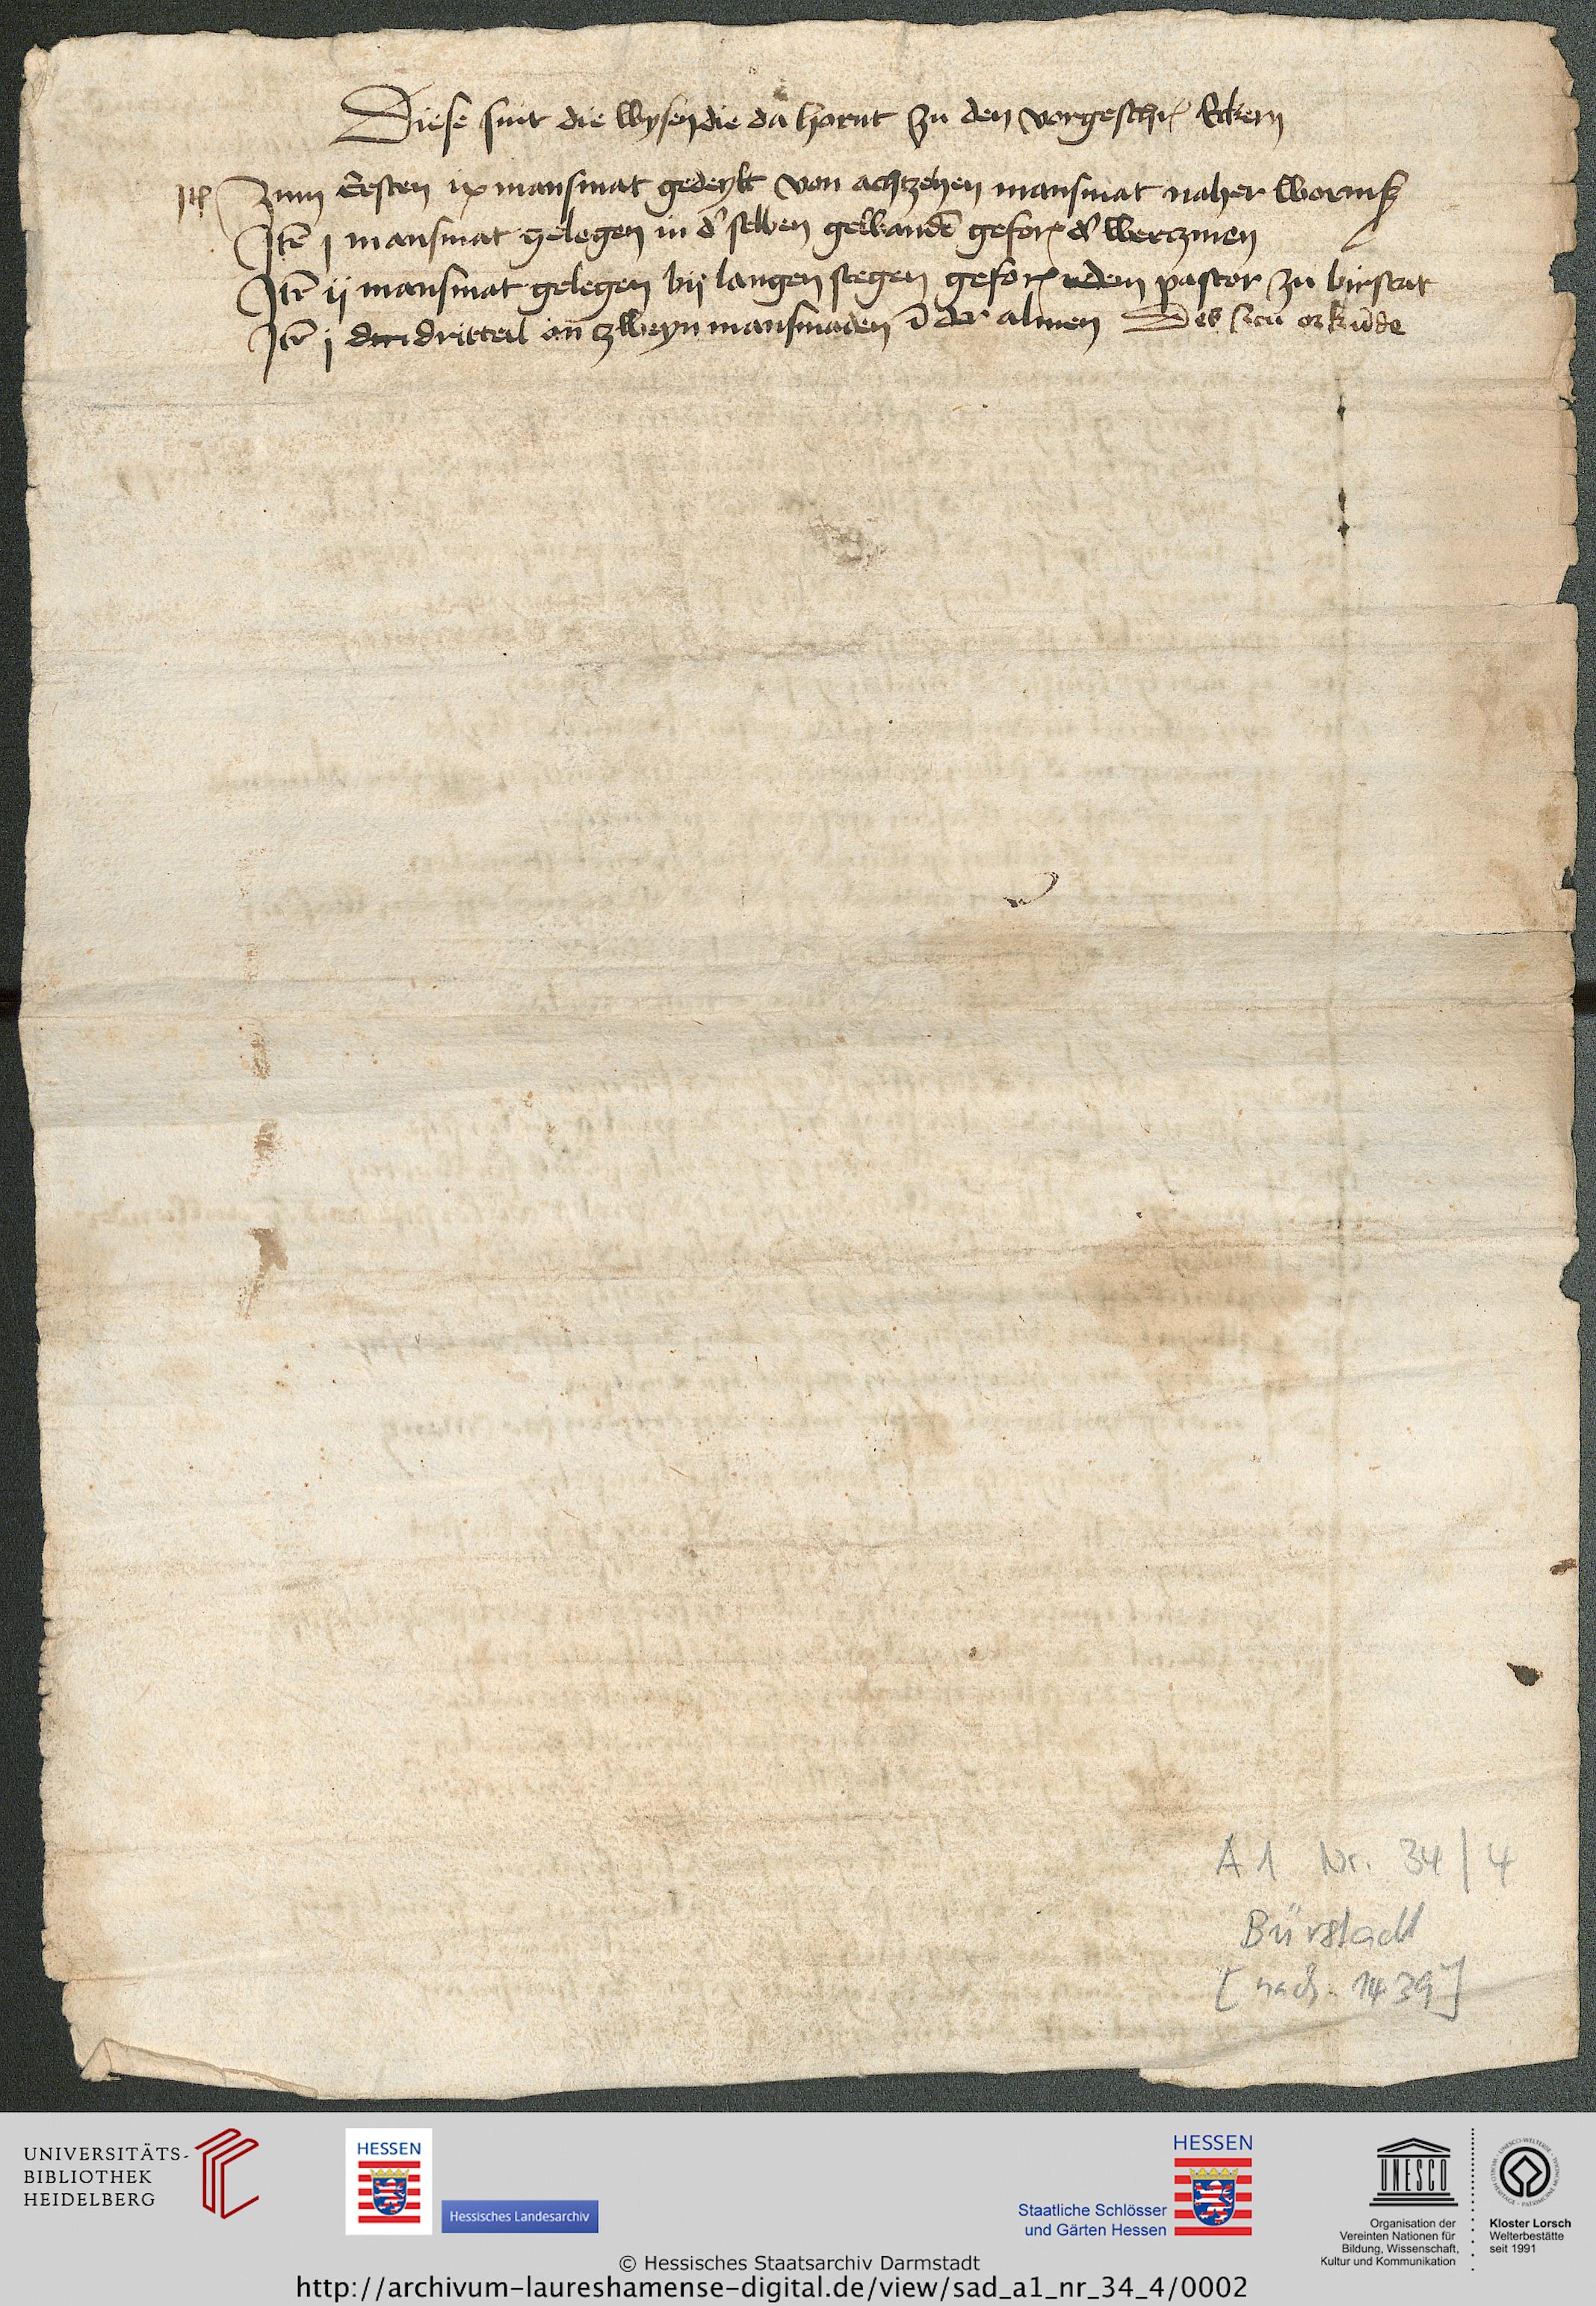 Diese sint die wysen die da hornt zu den vorgeschr Eckern
Zum Ersten ix mansmat gedeylt von achtzehen mansmat naher worms
Itē j mansmat gelegen in d' selben gewandē gefor d'
Itē ij mansmat gelegen bij langen stegen gefor dem pastor zu birstat
Itē j dritteil an zweyn mansmaden ī der almen Des orkūde
A 1 Nr. 34/4
Bürstadt
[nach 1439]
UNIVERSITÄTS-
BIBLIOTHEK
HEIDELBERG
HESSEN
Hessisches Landesarchiv
HESSEN
Staatliche Schlösser
und Gärten Hessen
UNESCO
Organisation der
Vereinten Nationen für
Bildung, Wissenschaft,
Kultur und Kommunikation
Kloster Lorsch
Welterbestätte
seit 1991
© Hessisches Staatsarchiv Darmstadt
http://archivum-laureshamense-digital.de/view/sad_a1_nr_34_4/0002